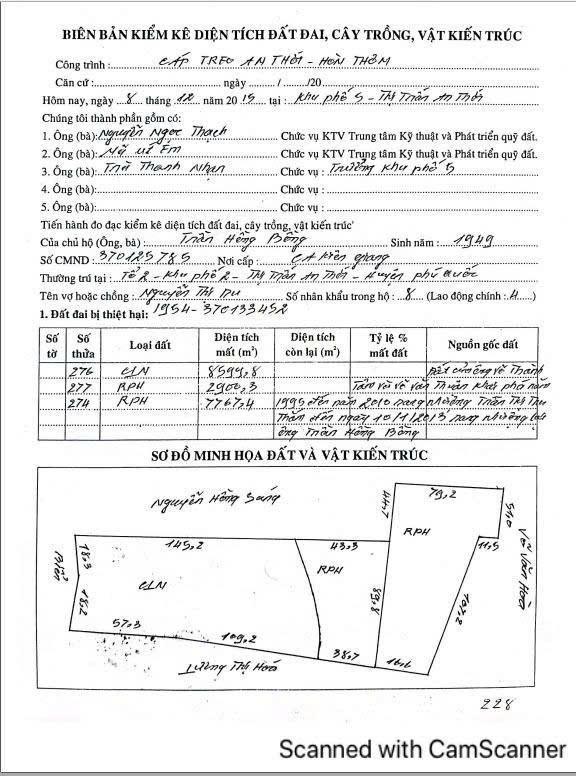 BIÊN BẢN KIỂM KÊ DIỆN TÍCH ĐẤT ĐAI, CÂY TRỒNG, VẬT KIẾN TRÚC
Công trình : CÁP TREO AN THỚI - HÒN THƠM
Căn cứ : ngày / /20
Hôm nay, ngày 8 tháng 12 năm 2015 tại : Khu phố 5 - Thị Trấn An Thới
Chúng tôi thành phần gồm có:
1. Ông (bà): Nguyễn Ngọc Thạch Chức vụ KTV Trung tâm Kỹ thuật và Phát triển quỹ đất.
2. Ông (bà): Út Em Chức vụ KTV Trung tâm Kỹ thuật và Phát triển quỹ đất.
3. Ông (bà): Thanh Nhạn Chức vụ : Trưởng khu phố 5
4. Ông (bà): Chức vụ :
5. Ông (bà): Chức vụ :
Tiến hành đo đạc kiểm kê diện tích đất đai, cây trồng, vật kiến trúc'
Của chủ hộ (Ông, bà) : Trần Hồng Bông Sinh năm : 1949
Số CMND : 370125785 Nơi cấp : CA Kiên giang
Thường trú tại : Tổ 2 - Khu phố 2 - Thị Trấn An Thới - Huyện phú Quốc
Tên vợ hoặc chồng : Nguyễn Thị Du Số nhân khẩu trong hộ : 8 (Lao động chính : 4)
1. Đất đai bị thiệt hại: 1954 - 370133452
Số tờ Số thửa Loại đất Diện tích mất (m²) Diện tích còn lại (m²) Tỷ lệ % mất đất Nguồn gốc đất
276 CLN 8599,8 của ông võ Thành
277 RPH 2900,3 Tâm và võ văn Thuận khai phá năm
274 RPH 7767,4 1995 đến năm 2010 sang nhượng Trần Thị Thu
Thắm đến ngày 10/1/2013 sang nhượng lại
ông Trần Hồng Bông
SƠ ĐỒ MINH HỌA ĐẤT VÀ VẬT KIẾN TRÚC
Nguyễn Hồng Sáng
79,2
44,7
51,0
RPH
145,2
43,3
11,5
Võ Văn Hoà
Biển
18,3
RPH
CLN
18,2
89,8
107,2
57,3
109,2
38,7
16,6
Lương Thị Hoá
228
Scanned with CamScanner